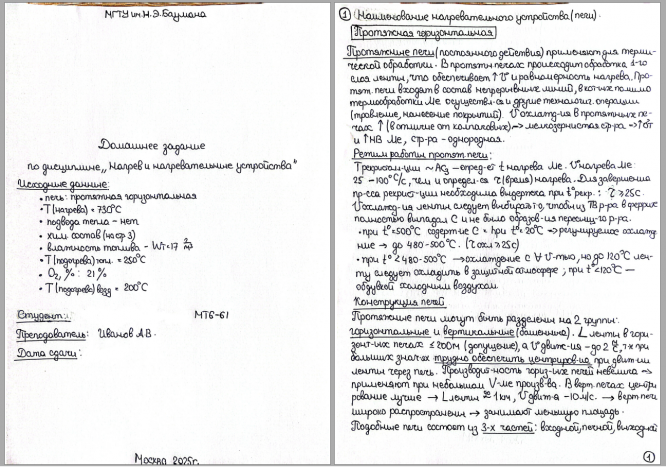 МГТУ им.Н.Э.Баумана
Домашнее задание
по дисциплине „Нагрев и нагревательные устройства"
Исходные данные:
• печь: протяжная горизонтальная
• T(нагрева) = 730°C
• подвода тепла - нет
• хим. состав (на стр 3)
• влажность топлива - Wг=17 г/м³
• T(подогрева) топ. = 250°C
• O₂, % : 21 %
• T(подогрева) возд = 200°C
Студент: МТ6-61
Преподаватель: Иванов А.В.
Дата сдачи:
Москва 2025г.
① Наименование нагревательного устройства (печи).
Протяжная горизонтальная
Протяжные печи (постоянного действия) применяют для терми-
ческой обработки. В протяжн печах происходит обработка 1-го
слоя ленты, что обеспечивает ↑V и равномерность нагрева. Про-
тяж. печи входят в состав непрерывных линий, в кот-ых помимо
термообработки Ме осуществл-ся и другие технолог. операции
(травление, нанесение покрытий). V охлажд-ия в протяжных пе-
чах ↑ (в отличие от колпаковых) → мелкозернистая стр-ра → ↑σт
и ↑HB Ме, стр-ра - однородная.
Режим работы протяж печи:
Tрекристал-ции ~ Ac₃ - опред-ет t нагрева Ме. V нагрева Ме:
25 - 100°C/с, чем и определ-ся τ (время) нагрева. Для завершения
пр-сса рекрист-ции необходима выдержка при t°рекр. : τ ≥ 25с.
V охлажд-ия ленты следует выбирать, чтобы из ТВ р-ра в феррите
полностью выпадал С и не было образов-ия пересыщ-го р-ра.
• при t°<500°C содерж-ие С = при t°<20°C → регулируемое охлажде
ние → до 480-500°C. (τ охл ≥ 25с)
• при t°<480-500°C → охлаждение с ∀ V-тью, но до 120°C лен-
ту следует охладить в защитной атмосфере ; при t°<120°C —
обдувкой холодным воздухом.
Конструкция печей
Протяжные печи могут быть разделены на 2 группы:
горизонтальные и вертикальные (башенные). L ленты в гори-
зонт-ых печах ≤ 200м (допущение), а V движ-ия - до 2 м/с, т.к при
больших знач-ях трудно обеспечить центриров-ие при движ-ии
ленты через печь. Производит-ность гориз-ых печей невелика →
применяют при небольшом V-ме произв-ва. В верт печах центри
рование лучше → L ленты ≈ 1 км, V движ-я ~10 м/с. → верт печи
широко распространены → занимают меньшую площадь.
Подобные печи состоят из 3-х частей: входной, печной, выходной
①